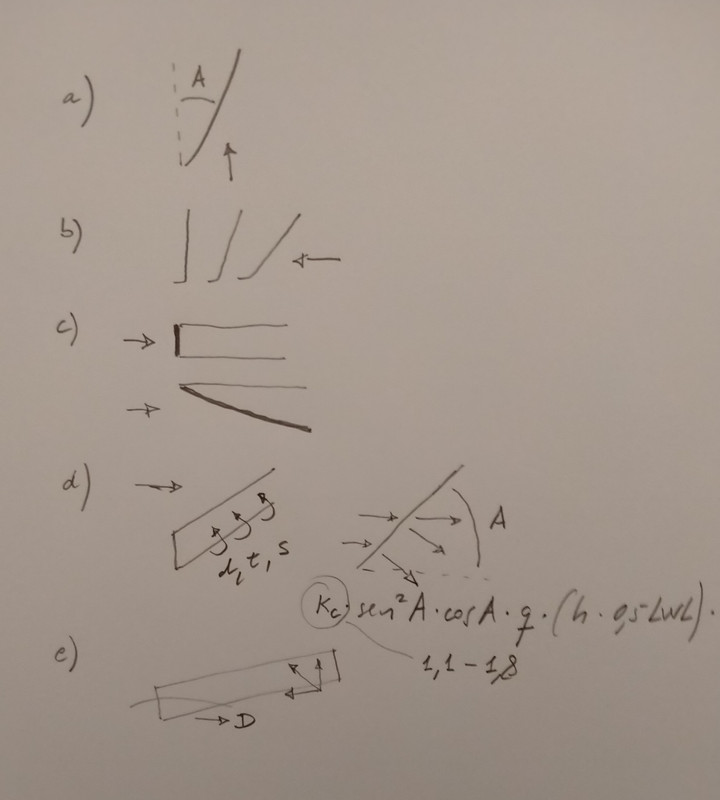 a) A
b)
c)
d) A
d, t, s
Kc · sen²A · cosA · q · (h · 0,5 LWL) ·
1,1 - 1,8
e)
D